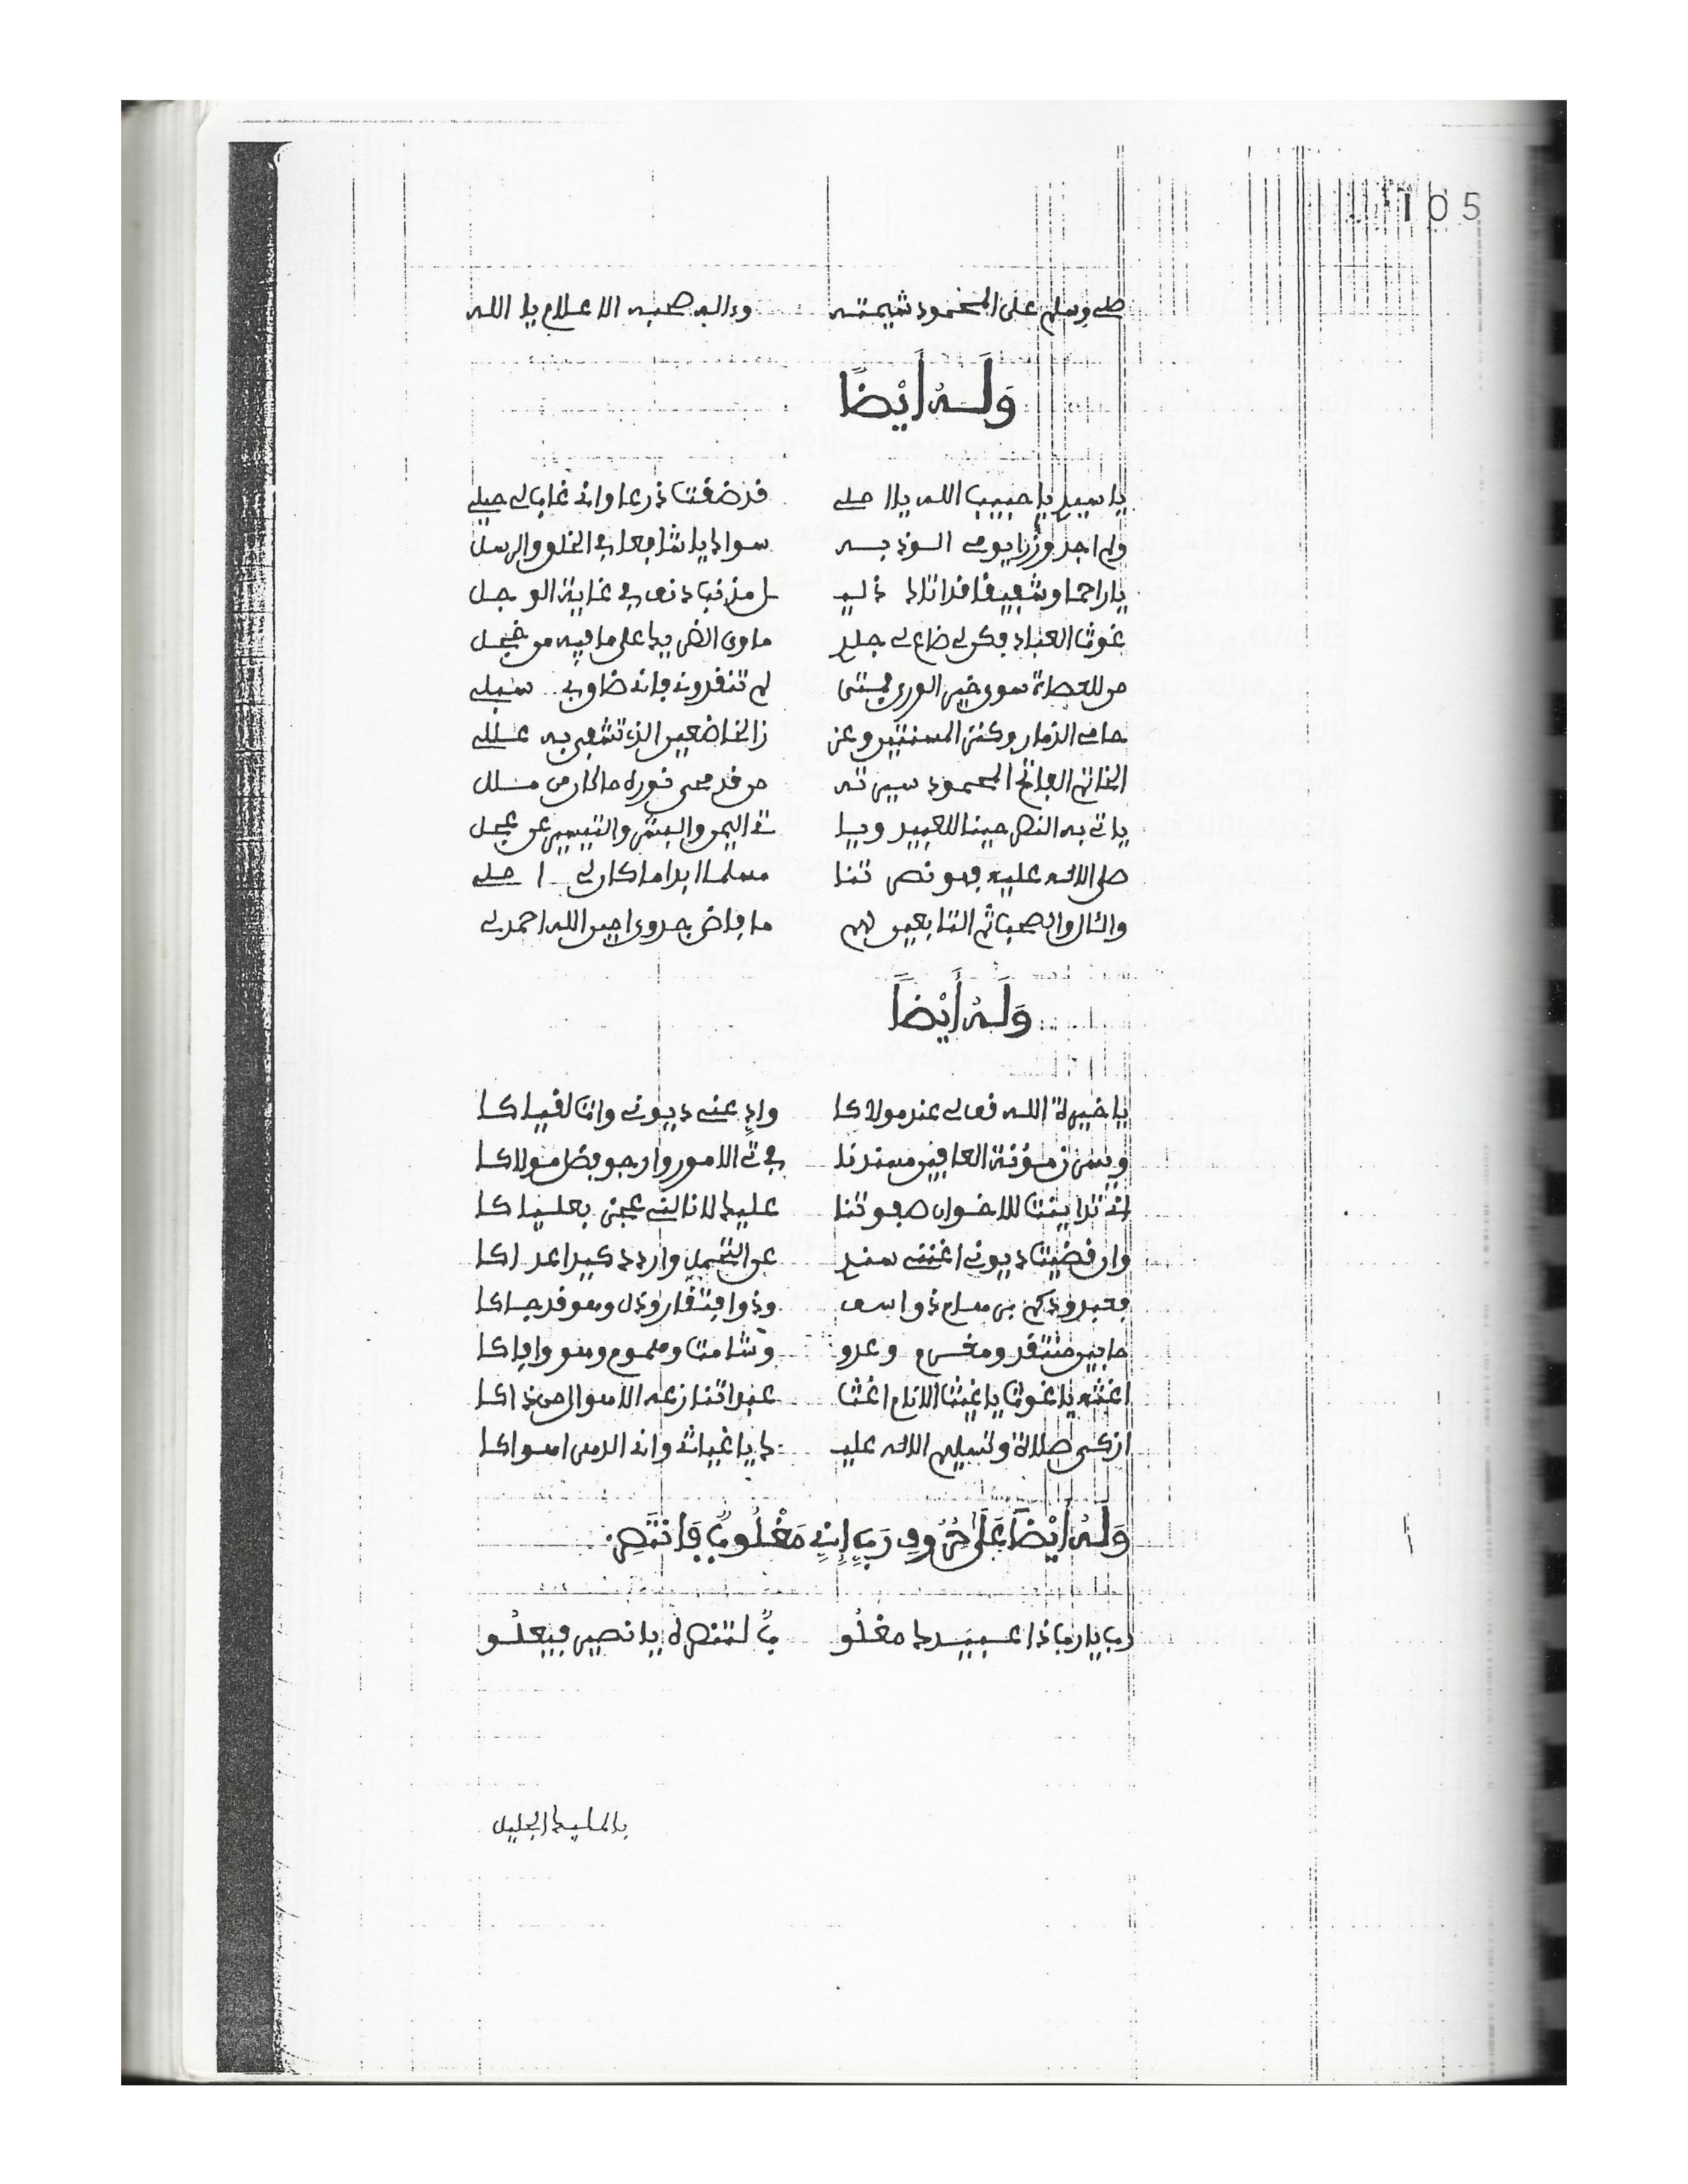 105
صلى وسلم على المحمود شيمته وءاله صحبه الاعلام يا الله
وَلَهُ أَيْضًا
يا سيد يا حبيب الله يا املي قد ضقت ذرعا وان غابا لي حيلي
ولم اجد وزرا يومي الوذ به سواك يا شافعا في الخلق والرسل
يا راحما وشفيقا قد اتاك ذليـ ـل مذنب دنف في غاية الوجل
غوث العباد فكن لي ضاع لي جلدي ماوى الضريك على ما فيه من خجل
من للعصاة سوى خير الورى لم تنقذوني فاني ضاق بي سبلي
حامي الذمار وكنز المستنير وعز زالخاضعين الذي تشفى به عللي
الخاتم الفاتح المحمود سيرته من قد محى نوره ما كان من ملل
ياتي به النصر حينا للعبيد ويا تي اليمن والبشر والتيسير عن عجل
صلى الاله عليه فهو نصرتنا مسلما ابدا ما كان لي املي
والال والصحب ثم التابعين لهم ما فاض جدوى امين الله احمد لي
وَلَهُ أَيْضًا
يا خيرة الله قف لي عند مولاكا واد عني ديوني وات لقياكا
ويسرن مؤنة العافين مسندنا في ذي الامور وارجو فضل مولاكا
اني تداينت للاخوان صفوتنا عليك لا نالني عجز بعلياكا
وان قضيت ديوني اغنني سندي عن التحمل واردد كيد اعداكا
فعبد ودكم بر مسلم ذو اسف وذو افتقار وذل وهو قد جاكا
ما بين منتقد ومغرم وعدو وشامت وهموم وهو وافاكا
اغثه يا غوث يا غيث الانام اغث عبدا تنازعه الاهوال من ذاكا
ازكى صلاة وتسليم الاله عليـ ـك يا غياث وان الدهر اهواكا
وَلَهُ أَيْضًا عَلَى حُرُوفِ رَبِّ إِنِّي مَغْلُوبٌ فَانتَصِرْ
رب يا رب ذا عبيدك مغلو بٌ لتنصره يا نصير فيعلو
يا لمليك الجليل